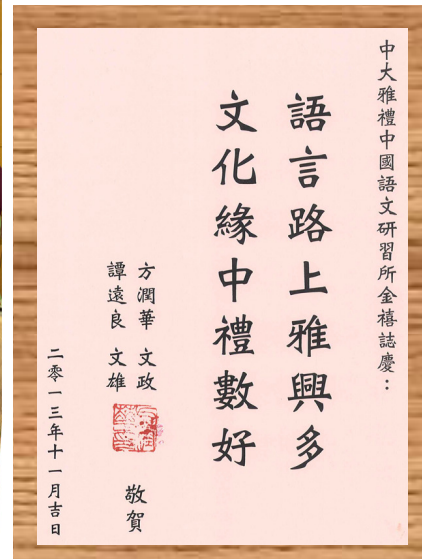 中大雅禮中國語文研習所金禧誌慶：
語言路上雅興多
文化緣中禮數好
方潤華 文政
譚遠良 文雄
敬賀
二零一三年十一月吉日